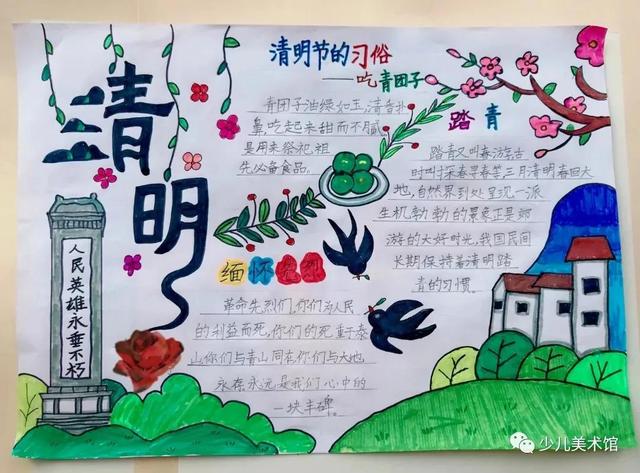 清明
清明节的习俗
——吃青团子
青团子油绿如玉,清香扑
鼻,吃起来甜而不腻,
是用来祭祀祖
先必备食品。
踏青
踏青又叫春游,古
时叫探春寻春等三月清明,春回大
地,自然界到处呈现一派
生机勃勃的景象,正是郊
游的大好时光,我国民间
长期保持着清明踏
青的习惯。
缅怀先烈
革命先烈们,你们为人民
的利益而死,你们的死重于泰
山你们与青山同在你们与大地
永存永远是我们心中的
一块丰碑。
人民英雄永垂不朽
少儿美术馆